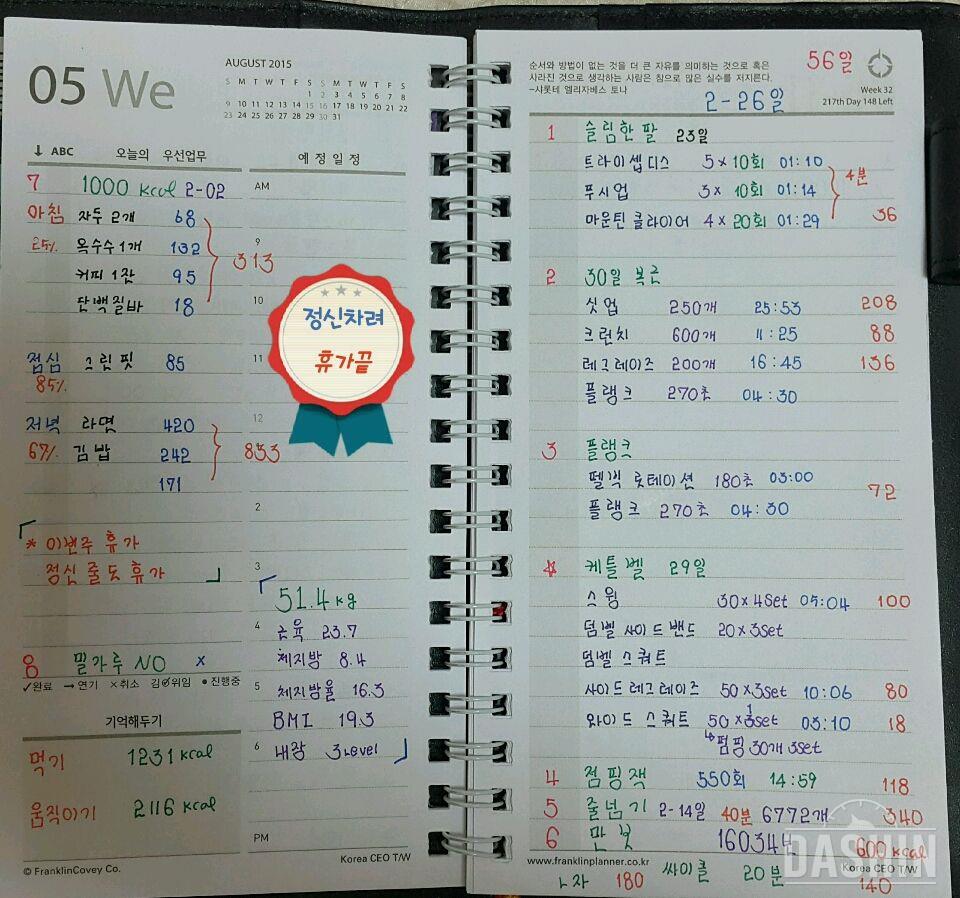 05 We
AUGUST 2015
S M T W T F S S M T W T F S
1 2 3 4 5 6 7 8
9 10 11 12 13 14 15 16 17 18 19 20 21 22
23 24 25 26 27 28 29 30 31
↓ ABC 오늘의 우선업무
예정일정
7 1000 kcal 2-02
아침 자두 2개 68
25% 옥수수 1개 132
커피 1잔 95
단백질바 18
313
점심 그린핏 85
85%
저녁 라면 420
67% 김밥 242
171
833
* 이번주 휴가
정신줄도 휴가
8 밀가루 NO x
✓완료 →연기 ×취소 김∅위임 •진행중
기억해두기
먹기 1231 kcal
움직이기 2116 kcal
© FranklinCovey Co.
AM
9
10
11
12
정신차려
휴가끝
2
3
51.4 kg
4 근육 23.7
체지방 8.4
5 체지방율 16.3
BMI 19.3
6 내장 3 Level
PM
Korea CEO T/W
순서와 방법이 없는 것을 더 큰 자유를 의미하는 것으로 혹은
사라진 것으로 생각하는 사람은 참으로 많은 실수를 저지른다.
-샤롯테 엘리자베스 토나
56일
Week 32
217th Day 148 Left
2-26일
1 슬림한 팔 23일
트라이셉디스 5 x 10회 01:10
푸시업 3 x 10회 01:14
마운틴 클라이어 4 x 20회 01:29
4분
36
2 30일 복근
싯업 250개 25:53 208
크런치 600개 11:25 88
레그레이즈 200개 16:45 136
플랭크 270초 04:30
3 플랭크
펠빅 롯테이션 180초 03:00
플랭크 270초 04:30
72
☆ 케틀벨 29일
스윙 30 x 4Set 05:04 100
덤벨 사이드 밴드 20 x 3set
덤벨 스쿼트
사이드레그레이즈 50 x 3set 10:06 80
와이드 스쿼트 50 x 3set 03:10 18
1
↳펌핑 30개 3set
4 점핑잭 550회 14:59 118
5 줄넘기 2-14일 40분 6772개 340
6 만보 160344 600 kcal
www.franklinplanner.co.kr
Korea CEO T/W
180 싸이클 20분 140
DASHIN